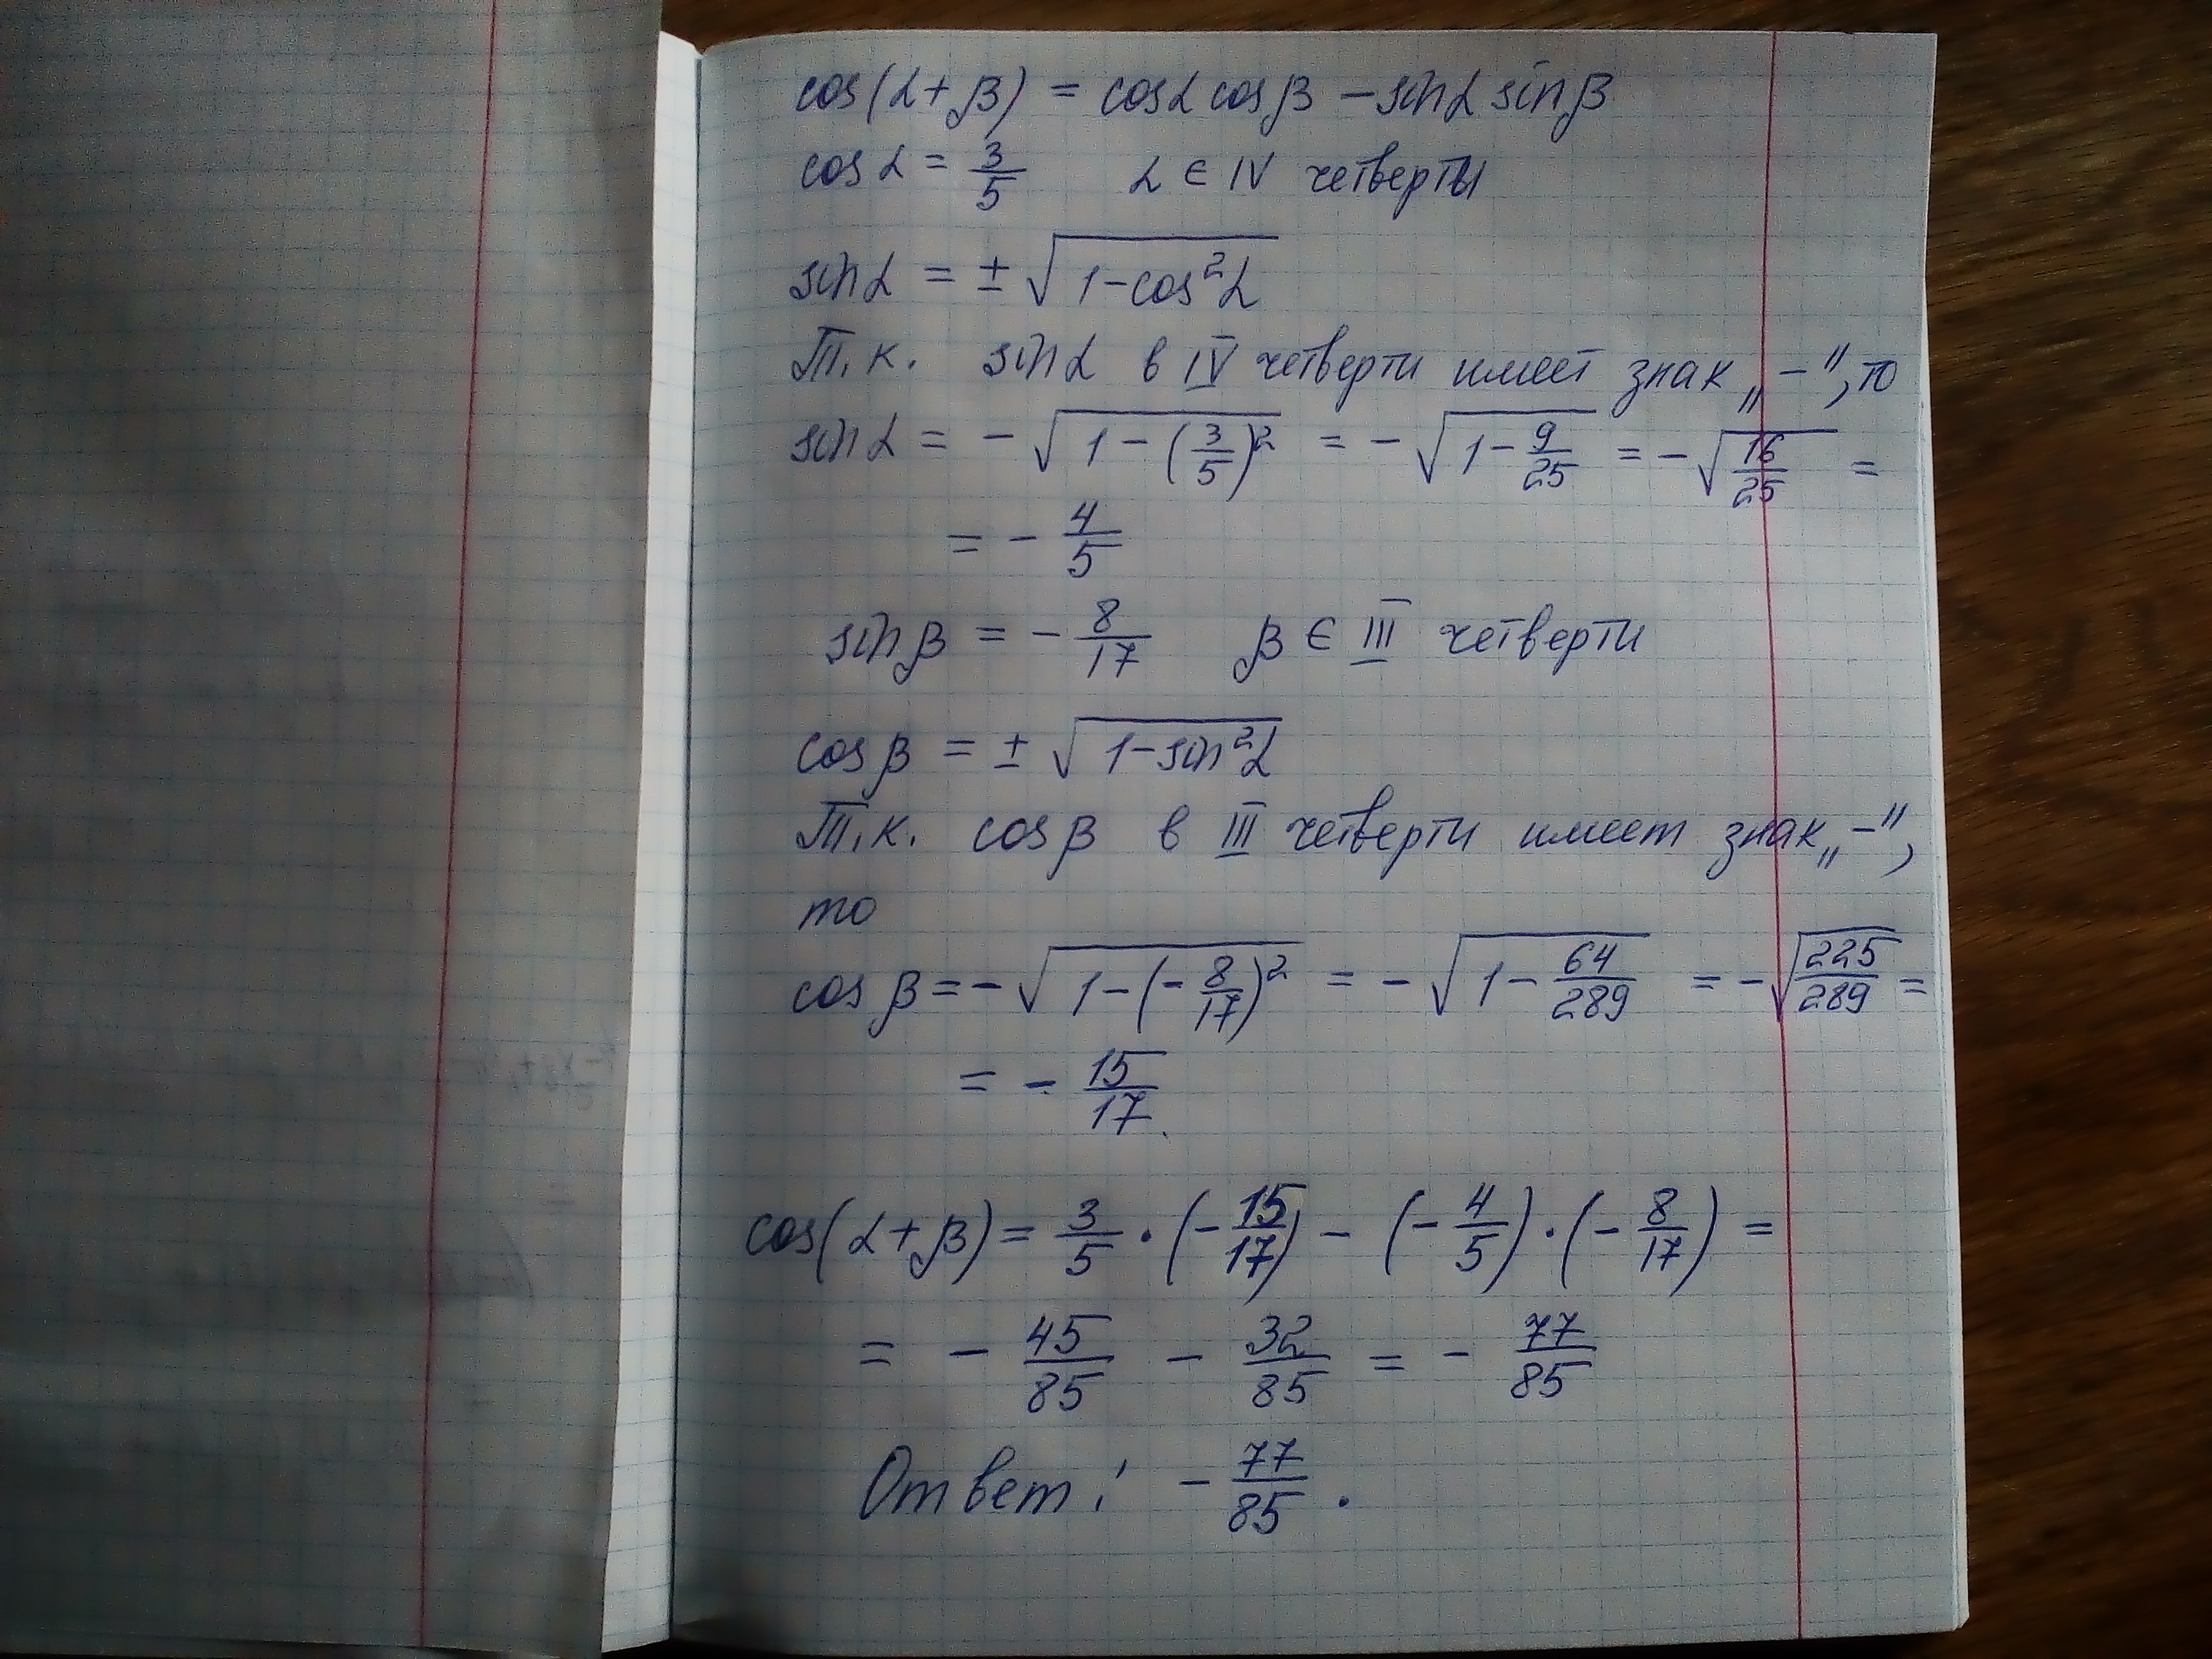 cos(α+β) = cosα cosβ − sinα sinβ
cosα = 3/5 α ∈ IV четверти
sinα = ± √(1−cos²α)
Т.к. sinα в IV четверти имеет знак „−", то
sinα = − √(1 − (3/5)²) = − √(1 − 9/25) = − √(16/25) =
= − 4/5
sinβ = − 8/17 β ∈ III четверти
cosβ = ± √(1−sin²α)
Т.к. cosβ в III четверти имеет знак „−",
то
cosβ = − √(1−(−8/17)²) = − √(1 − 64/289) = − √(225/289) =
= − 15/17.
cos(α+β) = 3/5 · (−15/17) − (−4/5) · (−8/17) =
= − 45/85 − 32/85 = − 77/85
Ответ: − 77/85.